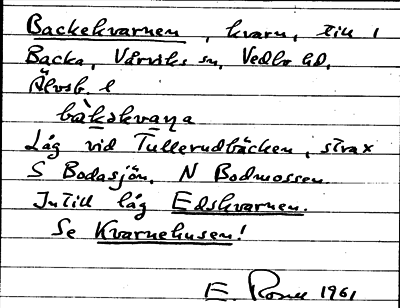 Backekvarnen, kvarn, till 1
Backa, Vårviks sn, Vedbo hd,
Älvsb. l
bàkakvaṇa
Låg vid Tullerudbäcken, strax
S Bodasjön, N Bodmossen.
Intill låg Edskvarnen.
Se Kvarnehusen!
E. 1961